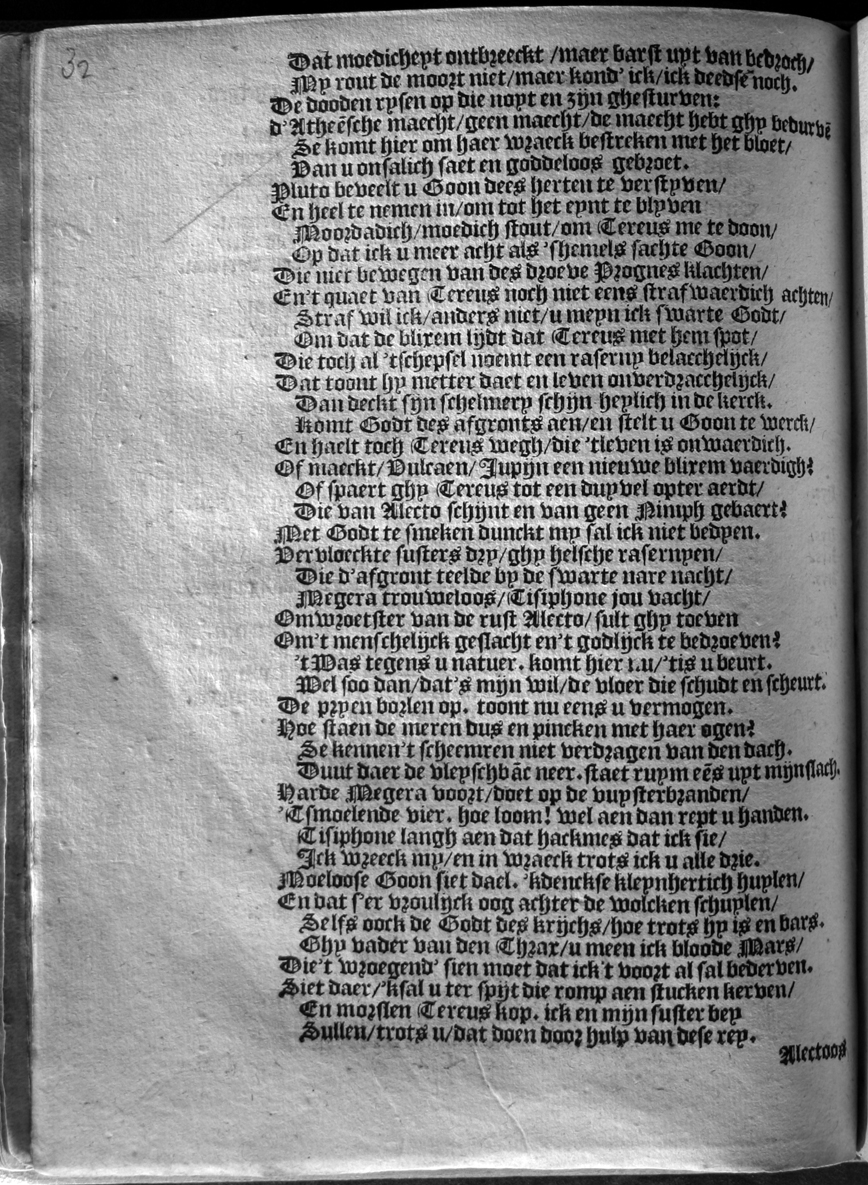 32
Dat moedicheyt ontbreeckt /maer barst uyt van bedroch/
My rout de moort niet/maer kond' ick/ick deedse noch.
De dooden rysen op die noyt en zijn ghesturven:
d'Atheẽsche maecht/geen maecht/de maecht hebt ghy bedurvẽ
Se komt hier om haer wraeck bestreken met het bloet/
Van u onsalich saet en goddeloos gebroet.
Pluto beveelt u Goon dees herten te verstyven/
En heel te nemen in/om tot het eynt te blyven
Moordadich/moedich stout/om Tereus me te doon/
Op dat ick u meer acht als 'shemels sachte Goon/
Die niet bewegen van des droeve Prognes klachten/
En't quaet van Tereus noch niet eens straf waerdich achten/
Straf wil ick/anders niet/u meyn ick swarte Godt/
Om dat de blixem lijdt dat Tereus met hem spot/
Die toch al 'tschepsel noemt een raserny belacchelijck/
Dat toont hy metter daet en leven onverdracchelijck/
Dan deckt syn schelmery schijn heylich in de kerck.
Komt Godt des afgronts aen/en stelt u Goon te werck/
En haelt toch Tereus wegh/die 'tleven is onwaerdich.
Of maeckt/Vulcaen/Jupijn een nieuwe blixem vaerdigh?
Of spaert ghy Tereus tot een duyvel opter aerdt/
Die van Alecto schijnt en van geen Nimph gebaert?
Met Godt te smeken dunckt my sal ick niet bedyen.
Vervloeckte susters dry/ghy helsche rasernyen/
Die d'afgront teelde by de swarte nare nacht/
Megera trouweloos/Tisiphone jou vacht/
Omwroetster van de rust Alecto/sult ghy toeven
Om't menschelijck geslacht en't godlijck te bedroeven?
't Was tegens u natuer. komt hier nu/'tis u beurt.
Wel soo dan/dat's mijn wil/de vloer die schudt en scheurt.
De pryen borlen op. toont nu eens u vermogen.
Hoe staen de meren dus en pincken met haer ogen?
Se kennen't scheemren niet verdragen van den dach.
Duut daer de vleyschbãc neer. staet ruym eẽs uyt mijn slach.
Harde Megera voort/doet op de vuysterbranden/
'Tsmoelende vier. hoe loom! wel aen dan rept u handen.
Tisiphone langh aen dat hackmes dat ick sie/
Ick wreeck my/en in wraeck trots ick u alle drie.
Moeloose Goon siet dael. 'kdenckse kleynhertich huylen/
En dat s'er vroulijck oog achter de wolcken schuylen/
Selfs oock de Godt des krijchs/hoe trots hy is en bars.
Ghy vader van den Thrax/u meen ick bloode Mars/
Die't wroegend' sien moet dat ick't voort al sal bederven.
Siet daer/'ksal u ter spijt die romp aen stucken kerven/
En morslen Tereus kop. ick en mijn suster bey
Sullen/trots u/dat doen door hulp van dese rey.
Alectoos